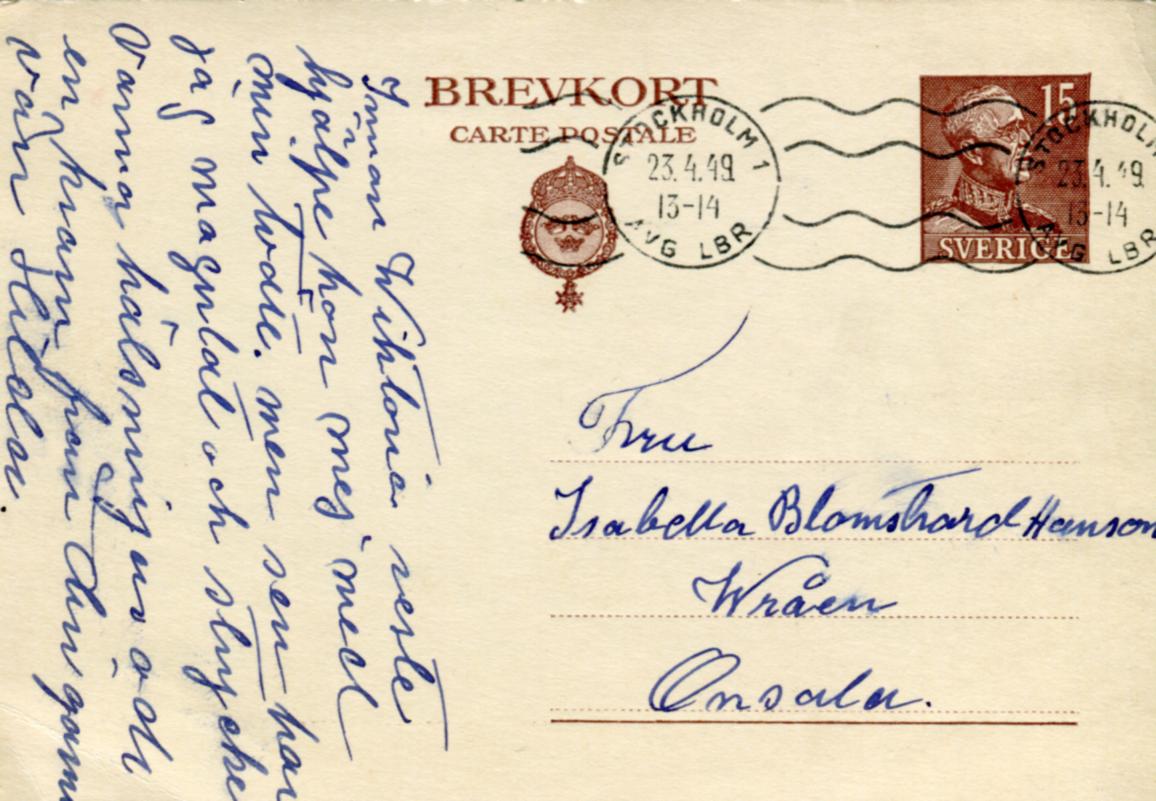 BREVKORT
CARTE POSTALE
15
SVERIGE
STOCKHOLM 1
23.4.49
13-14
AVG LBR
STOCKHOLM
23.4.49
13-14
AVG LBR
Fru
Isabella Blomstrand Hanson
Wråen
Onsala.
Innan Viktoria reste
hjälpe hon mej med
min lodie. men sen har
jag magrlat och stryck
Varma hälsningar och
en kram från Din gaml
vän Hilda.